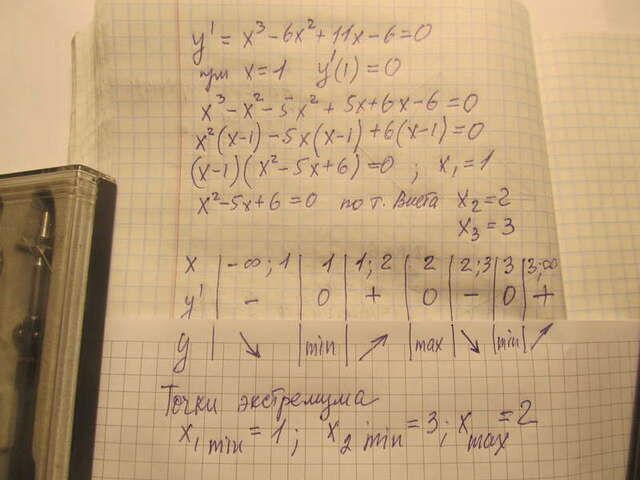 y' = x³ - 6x² + 11x - 6 = 0
при x = 1 y'(1) = 0
x³ - x² - 5x² + 5x + 6x - 6 = 0
x²(x-1) - 5x(x-1) + 6(x-1) = 0
(x-1)(x² - 5x + 6) = 0 ; x₁ = 1
x² - 5x + 6 = 0 по т. Виета x₂ = 2
x₃ = 3
x | -∞; 1 | 1 | 1; 2 | 2 | 2; 3 | 3 | 3; ∞
y' | - | 0 | + | 0 | - | 0 | +
y | ↘ | min | ↗ | max | ↘ | min | ↗
Точки экстремума
x₁ min = 1; x₂ min = 3; x max = 2